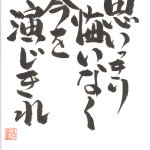 思いっきり
悔いなく
今を
演じきれ